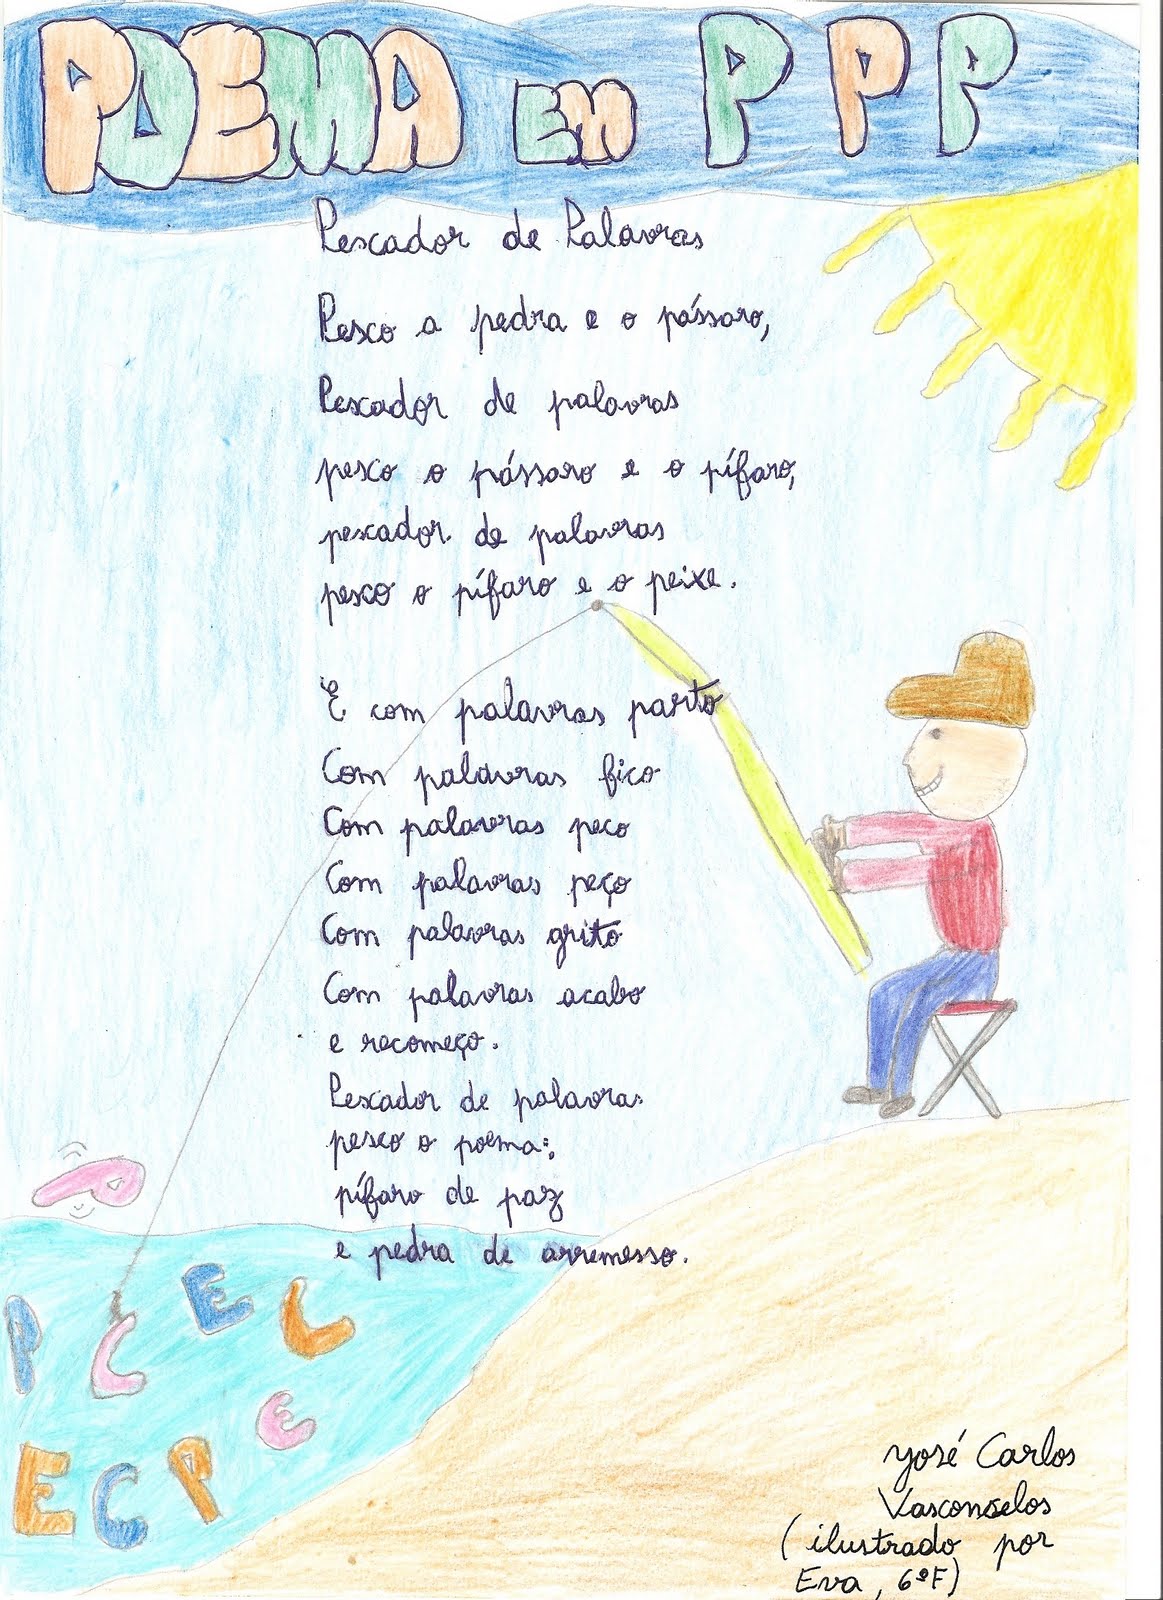 POEMA EM P P P
Pescador de Palavras
Pesco a pedra e o pássaro,
Pescador de palavras
pesco o pássaro e o pífaro,
pescador de palavras
pesco o pífaro e o peixe.
E com palavras parto
Com palavras fico
Com palavras peco
Com palavras peço
Com palavras grito
Com palavras acabo
e recomeço.
Pescador de palavras
pesco o poema:,
pífaro de paz
e pedra de arremesso.
P
P C E L
E
E C P
José Carlos
Vasconcelos
(ilustrado por
Eva, 6ºF)